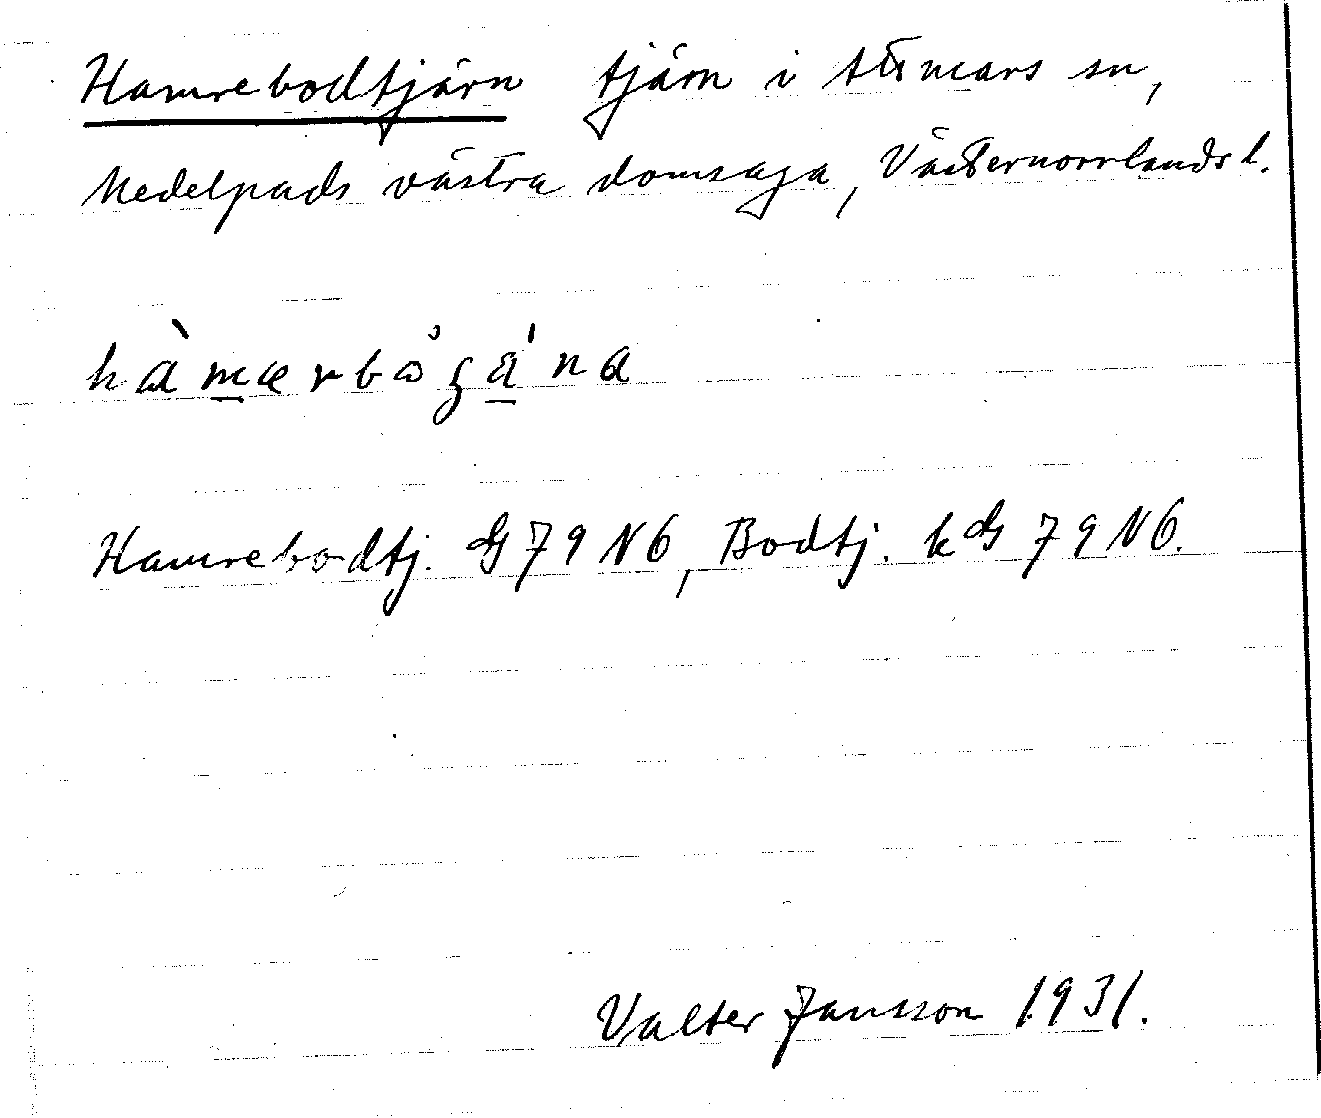 Hamrebodtjärn tjärn i Attmars sn,
Medelpads västra domsaga, Västernorrlands l.
Hamrebodtj. G 79 N6, Bodtj. k G 79 N6.
Valter Jansson 1931.